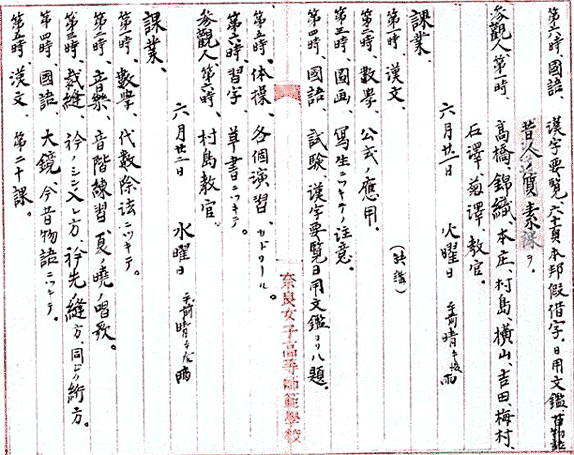 第六時、國語 漢字要覧、六十頁本邦假借字、日用文鑑
昔人ノ質素課ヲ。
参觀人第一時、高橋、錦織、本庄、村島、横山、吉田、梅村、
石澤、菊澤、教官。
六月廿一日 火曜日 午前晴午後雨
課業、
第一時、漢文、
第二時、數學、公式ノ應用。
第三時、圖画、寫生ニツキテノ注意。
第四時、國語、試験、漢字要覧日用文鑑ヨリ八題。
奈良女子高等師範學校
第五時、体操、各個演習、カドリール。
第六時、習字、草書ニツキテ。
参觀人第六時、村島教官。
六月廿二日 水曜日 午前晴午后晴
課業、
第一時、數學、代數除法ニツキテ。
第二時、音樂、音階練習、夏ノ曉ノ唱歌。
第三時、裁縫、衿ノシン入レ方、衿先ノ縫方、同ジク絎方。
第四時、國語、大鏡、今昔物語ニツキテ。
第五時、漢文、第二十課。